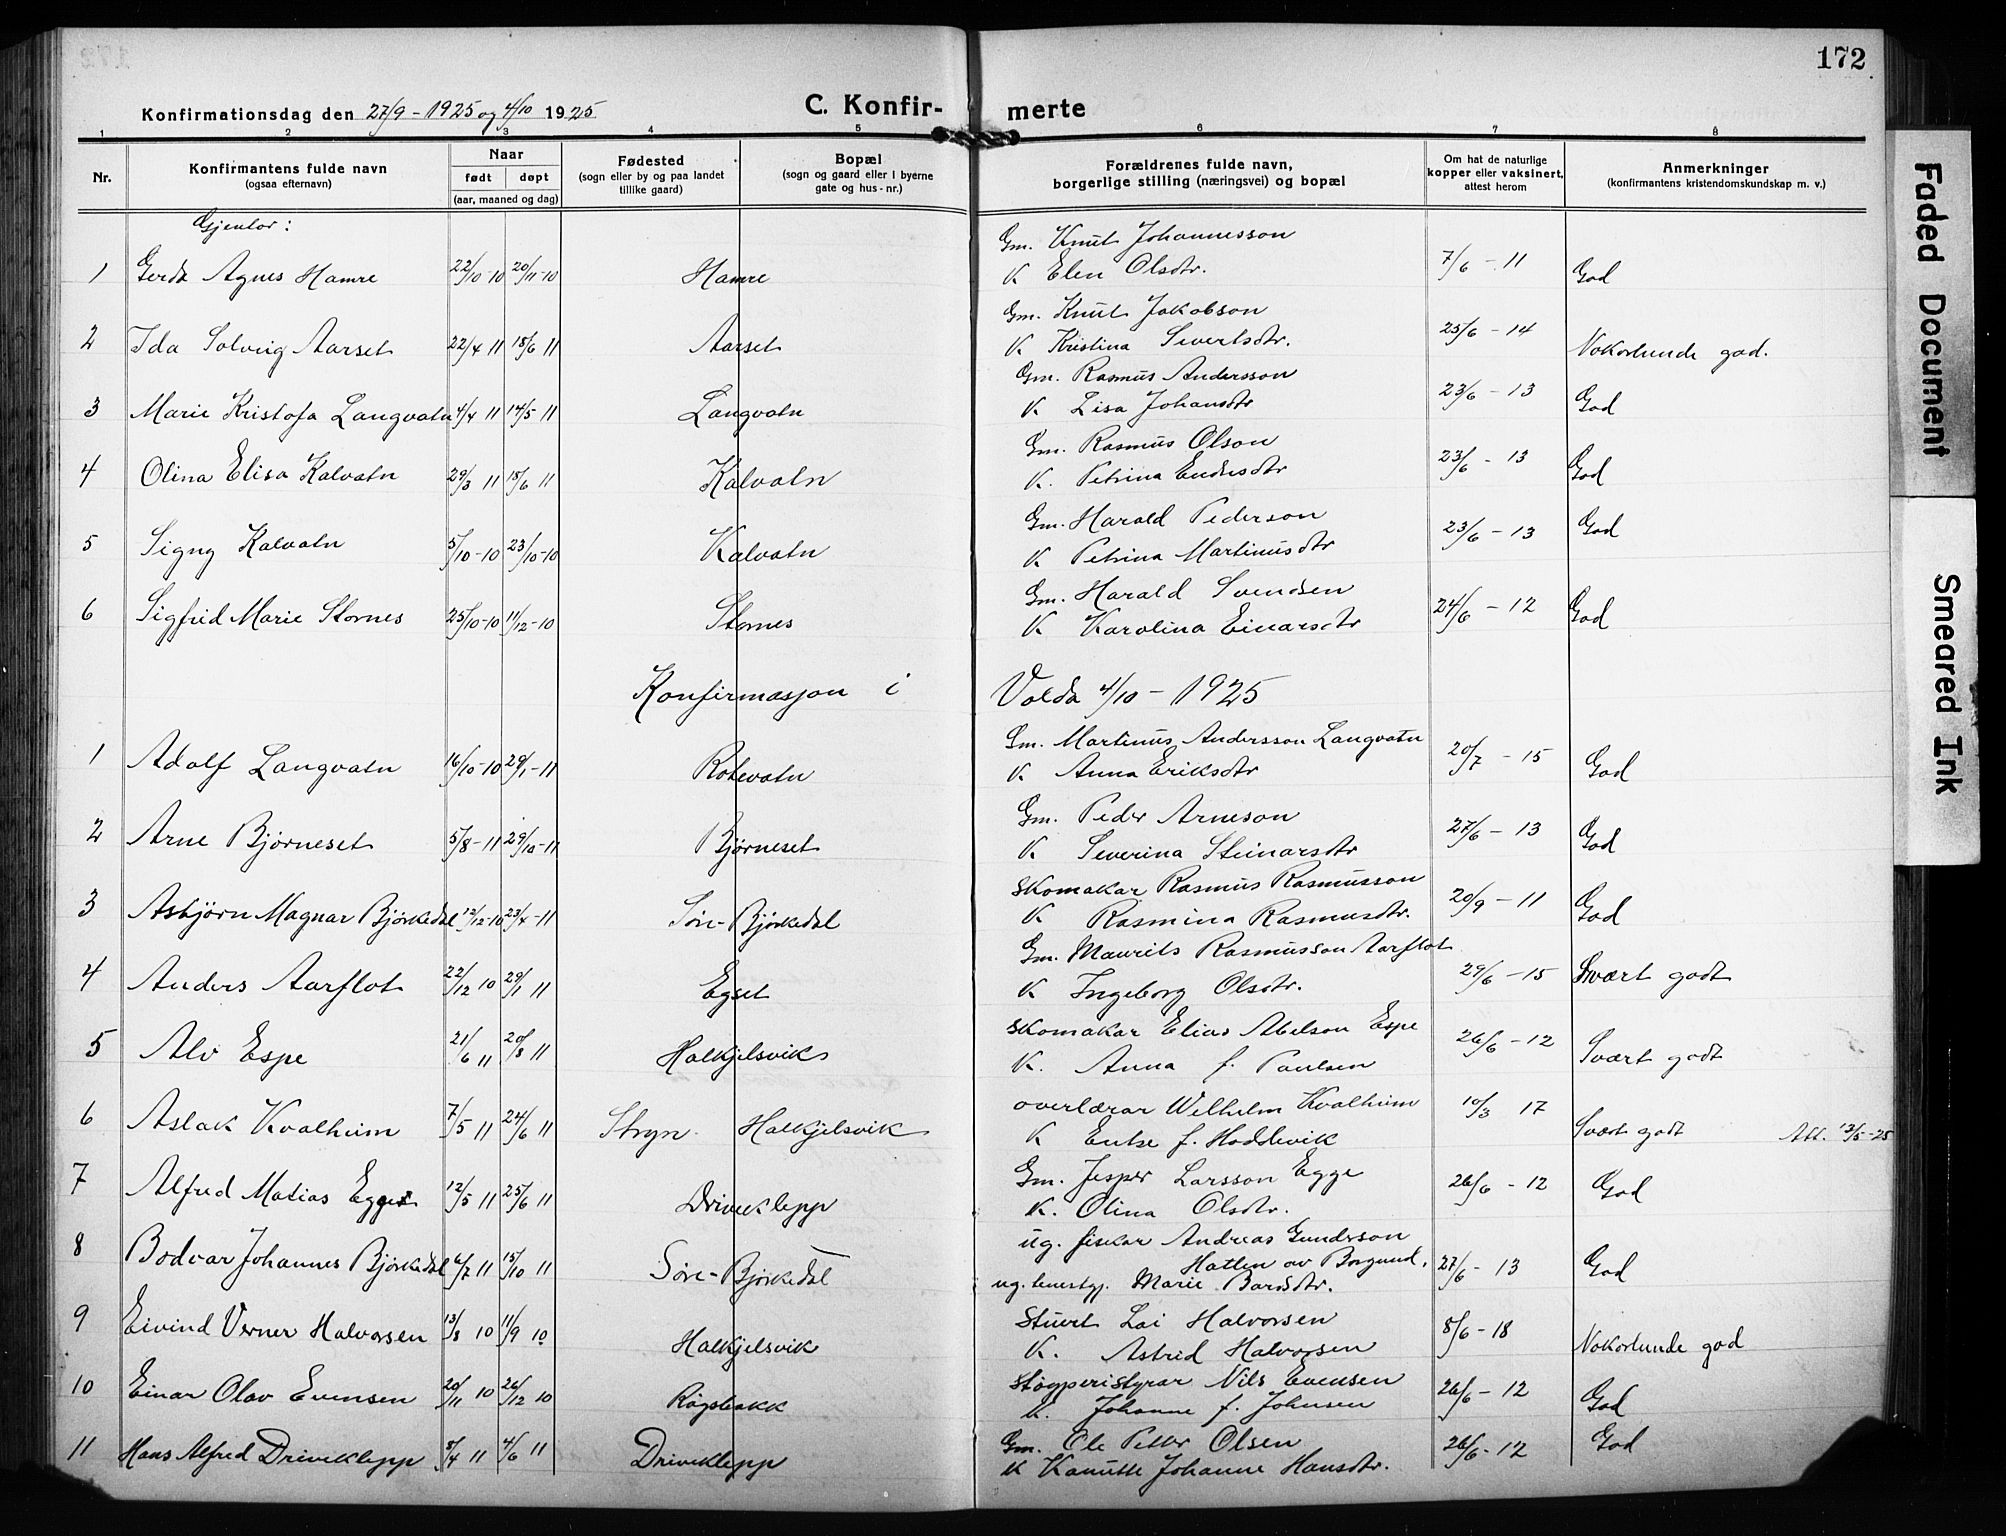 172
Konfirmationsdag den 27/9 - 1925 og 4/10 1925 C. Konfir- merte
1 2 3 4 5 6 7 8
Nr. Konfirmantens fulde navn (ogsaa efternavn) Naar født døpt (aar, maaned og dag) Fødested (sogn eller by og paa landet tillike gaard) Bopæl (sogn og gaard eller i byerne gate og hus-nr.) Forældrenes fulde navn, borgerlige stilling (næringsvei) og bopæl Om hat de naturlige kopper eller vaksinert, attest herom Anmerkninger (konfirmantens kristendomskundskap m. v.)
Gjentor:
1 Gerda Agnes Hamre 22/10-10 20/11-10 Hamre Gm. Knut Johannesson K Elen Olsdtr. 7/6 - 11 God
2 Ida Solveig Aarset 22/4 11 18/6 11 Aarset Gm. Knut Jakobson K. Kristina Sivertsdtr. 25/6 - 14 Nokorlunde god.
3 Marie Kristofa Langvatn 4/4 11 14/5 11 Langvatn Gm. Rasmus Andersson K Lisa Johansdtr 23/6 - 13 God
4 Olina Elisa Kalvatn 29/3 11 18/6 11 Kalvatn Gm. Rasmus Olson K. Petrina Endresdtr 23/6 - 13 God
5 Signy Kalvatn 5/10-10 23/10-10 Kalvatn Gm. Harald Pederson K Petrina Martinusdtr 23/6 - 13 God
6 Sigfrid Marie Stornes 25/10-10 11/12-10 Stornes Gm. Harald Svendsen K Karolina Einarsdtr 24/6 - 12 God
Konfirmasjon i Volda 4/10 - 1925
1 Adolf Langvatn 16/10-10 29/1-11 Rotevatn Gm. Martinus Andersson Langvatn K Anna Eriksdtr 20/7 - 15 God
2 Arne Bjørneset 5/8-11 29/10-11 Bjørneset Gm. Peder Arneson K. Severina Steinarsdtr 27/6 - 13 God
3 Asbjørn Magnar Bjørkedal 12/12-10 23/4-11 Søre-Bjørkedal Skomakar Rasmus Rasmusson K Rasmina Rasmusdtr. 20/9 - 11 God
4 Anders Aarflot 22/12 10 29/1 11 Egset Gm. Maurits Rasmusson Aarflot K Ingeborg Olsdtr. 29/6 - 15 Svært godt
5 Alv Espe 21/6 11 20/8 11 Halkjelsvik Skomakar Elias Abelson Espe K. Anna f. Paulsen 26/6 - 12 Svært godt
6 Aslak Kvalheim 7/5 11 24/6 11 Stryn. Halkjelsvik overlærar Wilhelm Kvalheim K f. Hoddevik 10/3 17 Svært godt Att. 13/5-25
7 Alfred Matias 12/5 11 25/6 11 Driveklepp Gm. Jesper Larsson Egge K. Olina Olsdtr. 26/6 - 12 God
8 Bodvar Johannes Bjørkedal 6/7 11 15/10 11 Søre-Bjørkedal ug. fiskar Andreas Gunderson Hatlen av Borgund. ug. tenestgj. Marie Bardsdtr. 27/6 - 13 God
9 Eivind Verner Halvorsen 13/8 10 11/9 10 Halkjelsvik Stuert Lai Halvorsen K. Astrid Halvorsen 8/6 - 18 Nokorlunde god
10 Einar Olav Evensen 20/11 10 26/12 10 Røysbakk Støyperistyrar Nils Evensen K. Johanne f. Johnsen 26/6 - 12 God
11 Hans Alfred Driveklepp 8/4 11 4/6 11 Driveklepp Gm. Ole Petter Olsen K Kanutte Johanne Hansdtr. 26/6 - 12 God
Faded Document
Smeared Ink